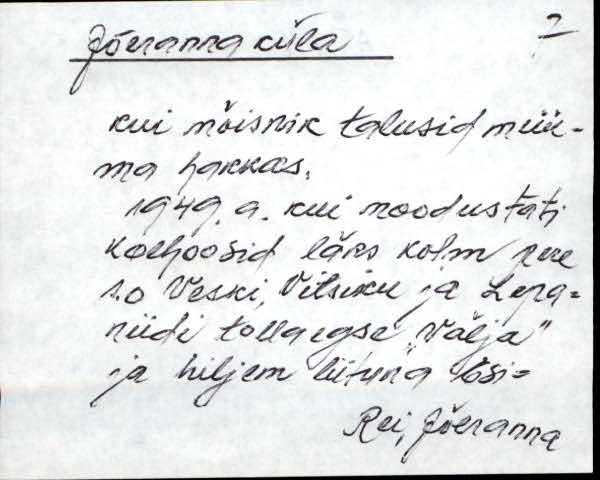 Jõeranna küla 7
kui mõisnik talusid müü-
ma hakkas.
1949. a. kui moodustati
kolhoosid läks kolm pere
s.o Veski, Vitsiku ja Lepa-
niidi tollaegse „Välja"
ja hiljem liitunna Õsi-
Rei, Jõeranna